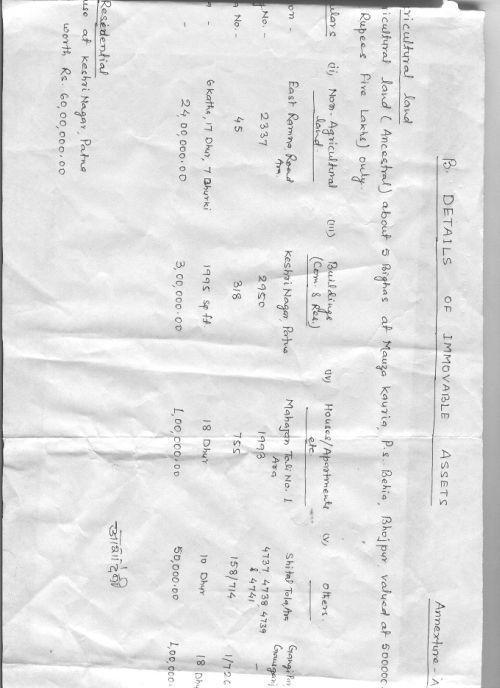 Annexture - A
B. DETAILS OF IMMOVABLE ASSETS
ricultural land
ricultural land (Ancestral) about 5 Bighas at Mauza Kauria, P.S. Behia, Bhojpur, valued at 500000.
Rupees Five Lakhs) only.
lars (ii) Non-Agricultural land (iii) Buildings (Com. & Res.) (iv) Houses/Apartments etc (v) Others
on - East Ramna Road Ara Keshri Nagar, Patna Mahajan Toli No. 1 Ara Shital Tola, Ara
No. - 2337 2950 1993 4737, 4738, 4739 & 4741 -
No. - 45 318 755 158/714 1/72
- 6 Katha, 17 Dhur, 7 Dhurki 1995 sq ft. 18 Dhur 10 Dhur 18 Dhu
- 24,00,000.00 3,00,000.00 1,00,000.00 50,000.00 1,00,000.
Residential
use at Keshri Nagar, Patna
worth Rs. 60,00,000.00